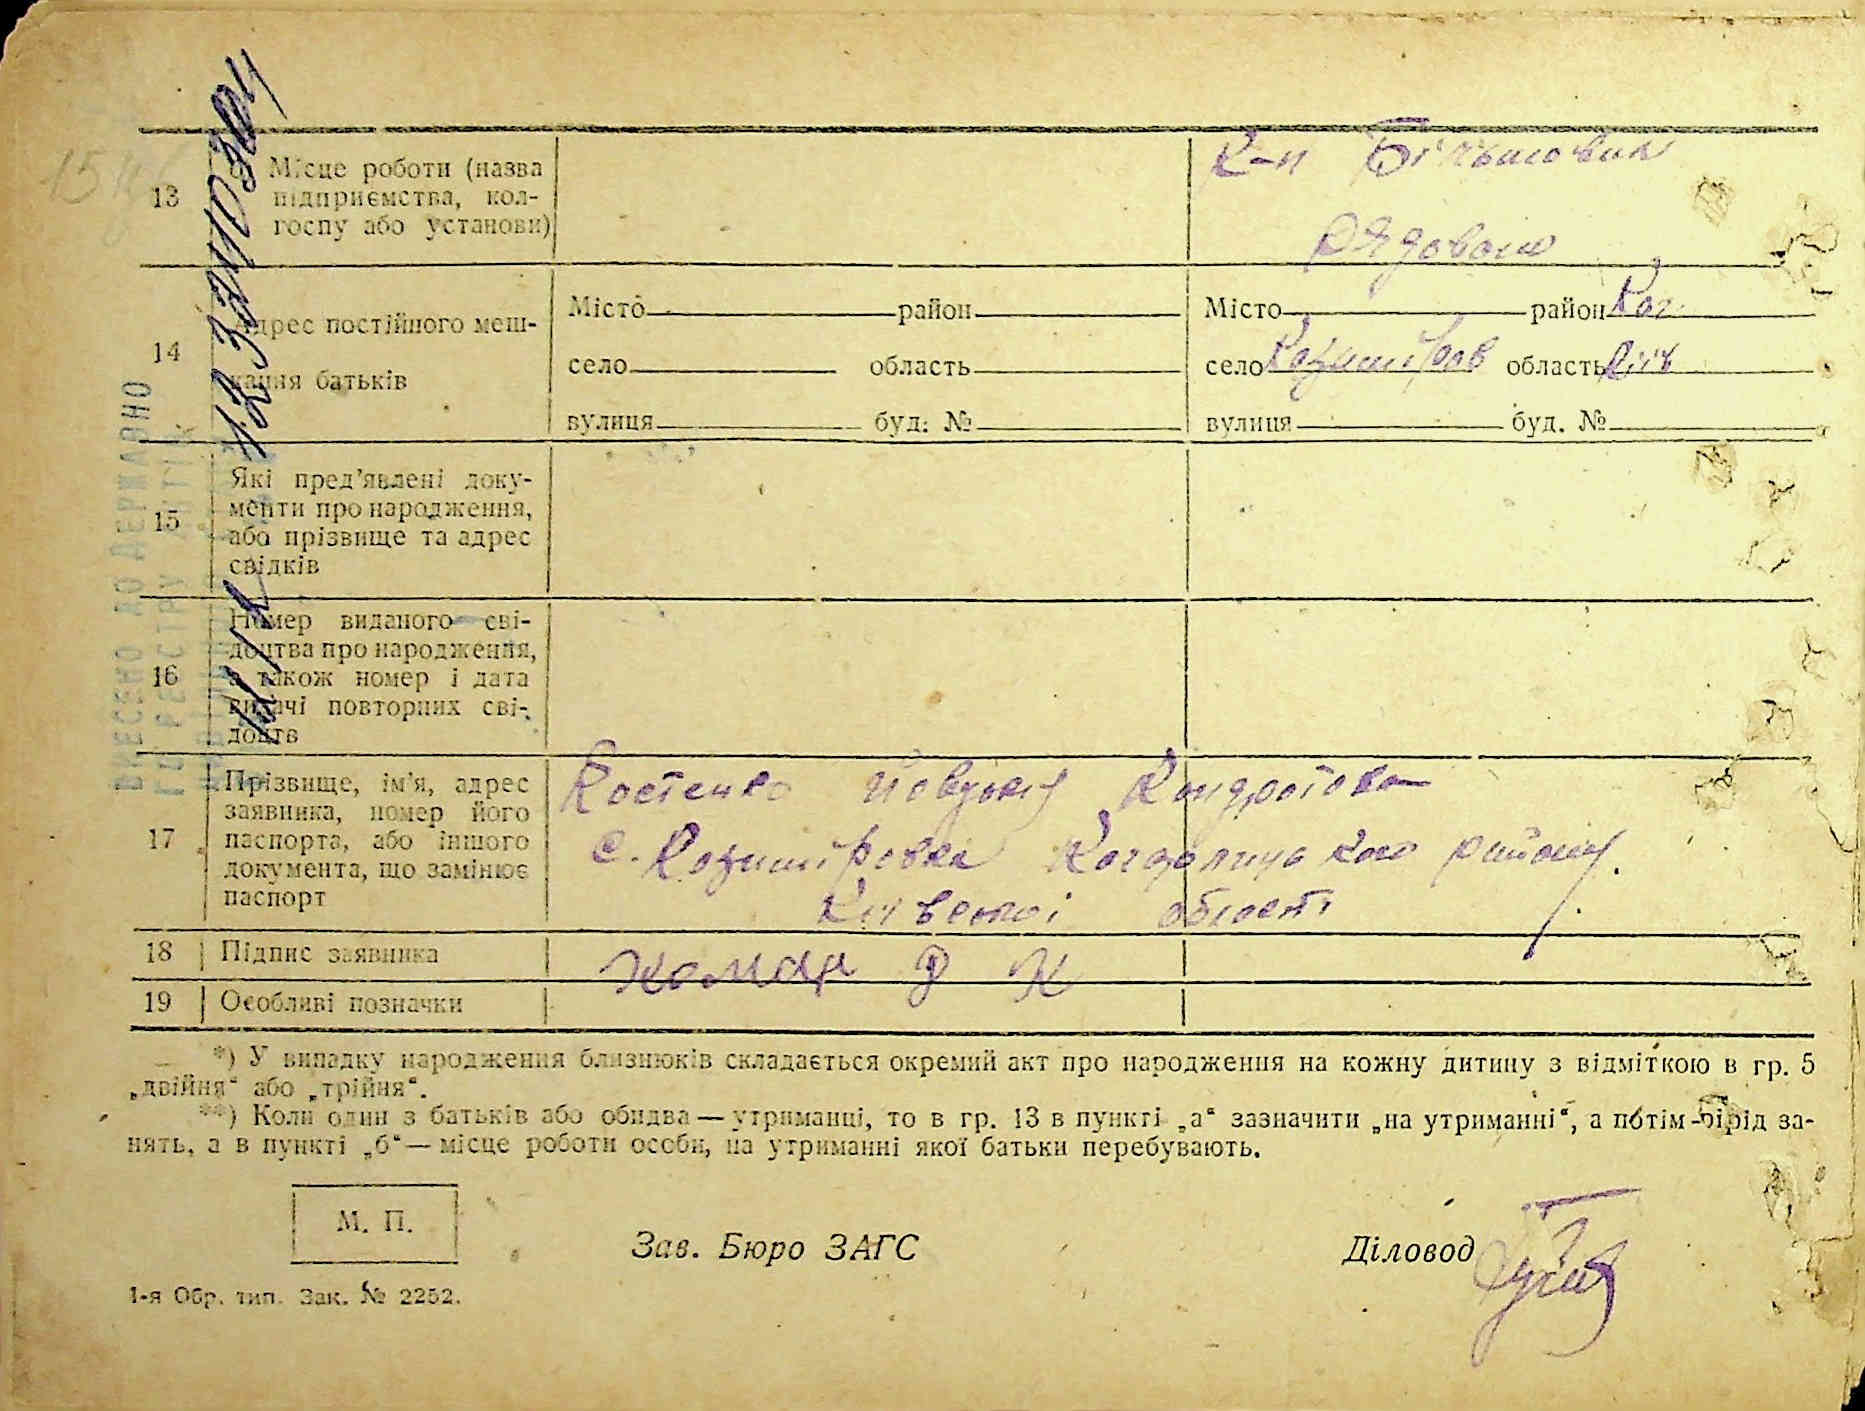 К-п Більшовик
13 Місце роботи (назва
підприємства, кол-
госпу або установи)
рядовою
14 Адрес постійного меш-
кання батьків
Місто район
село область
вулиця буд. №
Місто район Каг
село область Київ
вулиця буд. №
15 Які пред'явлені доку-
менти про народження,
або прізвище та адрес
свідків
16 Номер виданого сві-
доцтва про народження,
а також номер і дата
видачі повторних сві-
доцтв
17 Прізвище, ім'я, адрес
заявника, номер його
паспорта, або іншого
документа, що замінює
паспорт
Костенко
с. району.
Київської області
18 Підпис заявника
19 Особливі позначки
*) У випадку народження близнюків складається окремий акт про народження на кожну дитину з відміткою в гр. 5
„двійня“ або „трійня“.
**) Коли один з батьків або обидва — утриманці, то в гр. 13 в пункті „а“ зазначити „на утриманні“, а потім рірід за-
нять, а в пункті „б“ — місце роботи особи, на утриманні якої батьки перебувають.
М. П.
Зав. Бюро ЗАГС
Діловод
1-я Обр. тип. Зак. № 2252.